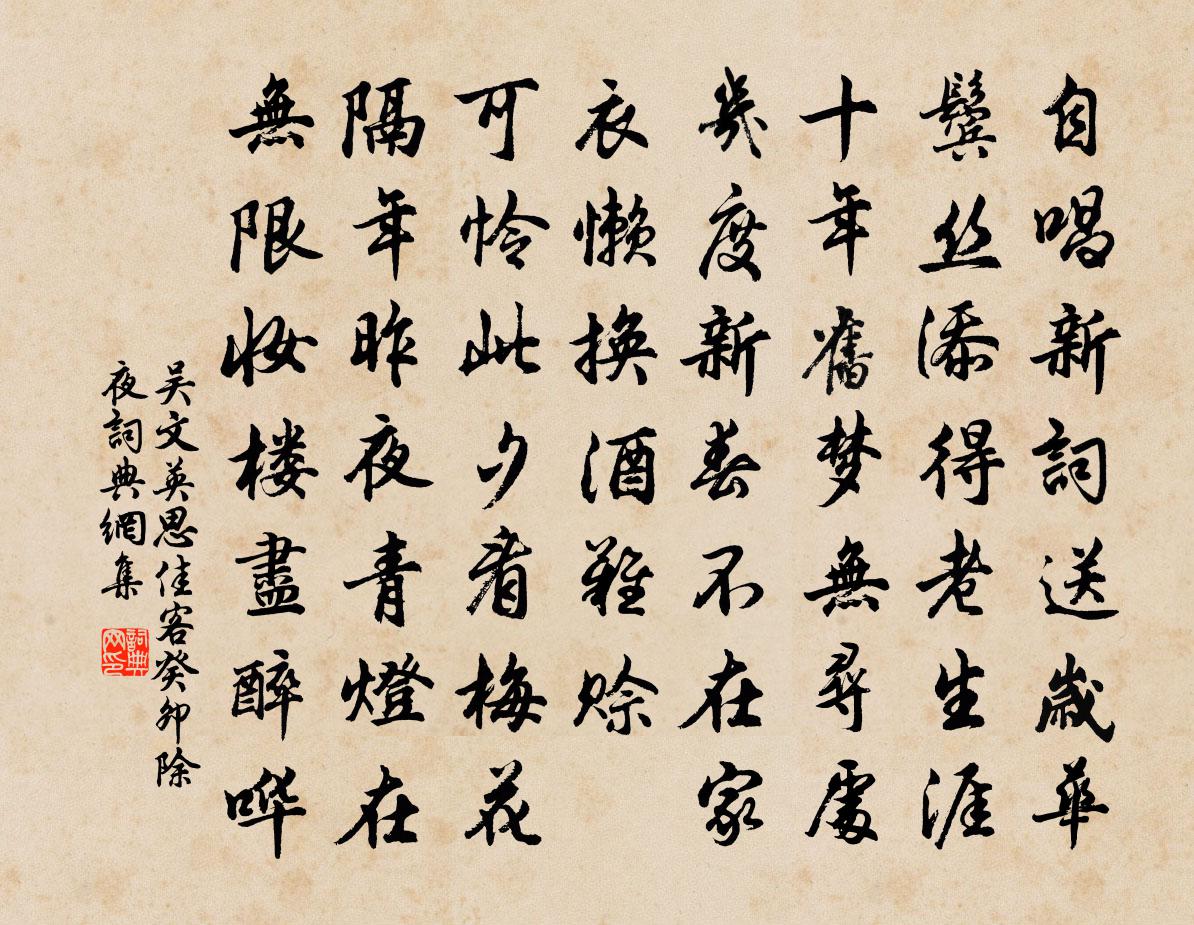 自唱新詞送歳華
鬓丝添得老生涯
十年舊梦無尋處
幾度新春不在家
衣懒换酒難赊
可怜此夕看梅花
隔年昨夜青燈在
無限妆楼盡醉哗
吴文英思佳客癸卯除
夜詞典網集
詞典
网印